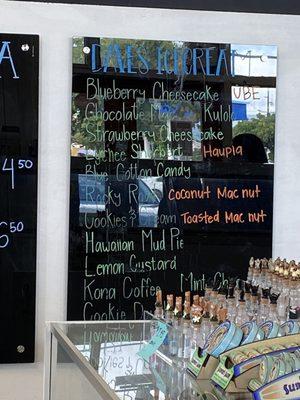 DAVES ICECREAM
UBE
Blueberry Cheesecake
Chocolate Mac Kulolo
Strawberry Cheesecake
Lychee Sherbert Haupia
Blue Cotton Candy
Rocky R Coconut Mac nut
Cookies & Cream Toasted Mac nut
Hawaiian Mud Pie
Lemon Custard
Kona Coffee Mint Ch
Cookie D
A
4.50
6.50